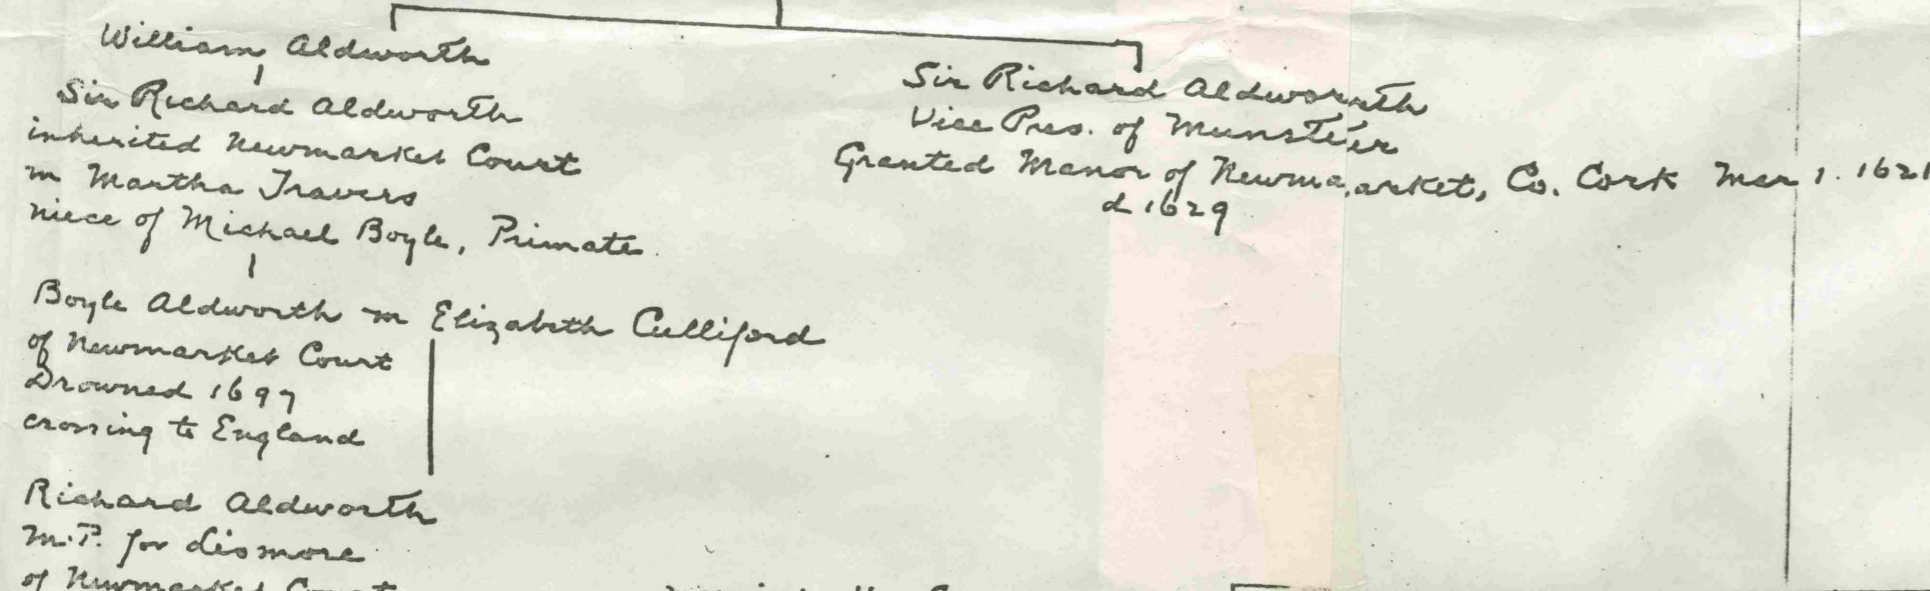 William Aldworth
Sir Richard Aldworth
inherited Newmarket Court
m Martha Travers
niece of Michael Boyle, Primate
Boyle Aldworth m Elizabeth Culliford
of Newmarket Court
Drowned 1697
crossing to England
Richard Aldworth
M.P. for Lismore
of Newmarket Court
Sir Richard Aldworth
Vice Pres. of Munster
Granted Manor of Newmarket, Co. Cork Mar 1. 1621
d 1629